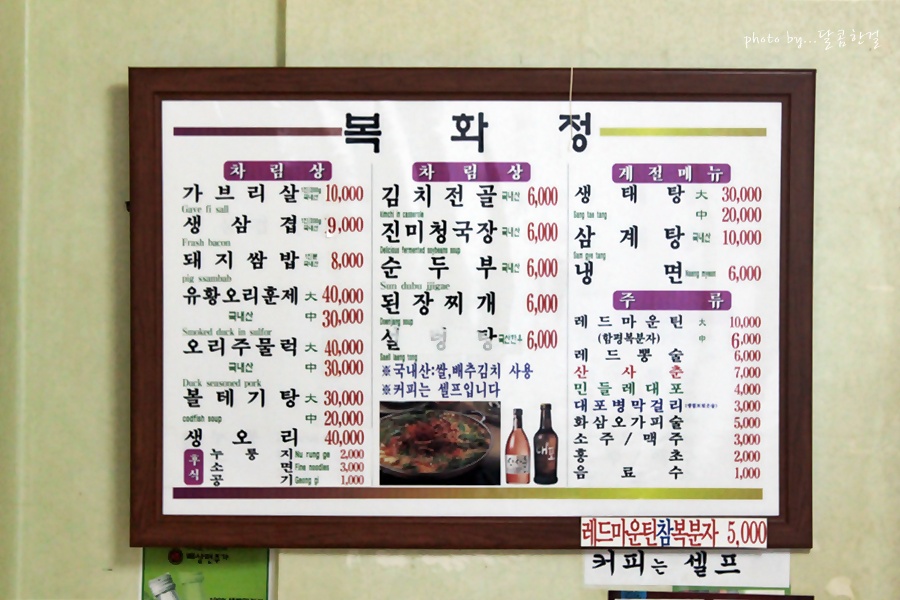 photo by...달콤한걸
복 화 정
차림상
가브리살 국내산 10,000
Gave fi sall
생삼겹 국내산 9,000
Frash bacon
돼지쌈밥 국내산 8,000
pig ssambab
유황오리훈제 大 40,000
국내산 中 30,000
Smoked duck in sulfor
오리주물럭 大 40,000
국내산 中 30,000
Duck seasoned pork
볼테기탕 大 30,000
codfish soup 中 20,000
생오리 40,000
후식
누룽지 Nu rung ge 2,000
소면 Fine noodles 3,000
공기 Geong gi 1,000
차림상
김치전골 국내산 6,000
kimchi in casserole
진미청국장 국내산 6,000
Delicious fermented soybeans soup
순두부 국내산 6,000
Sun dubu jjigae
된장찌개 6,000
Doenjang soup
설렁탕 6,000
Saell laung tang
※국내산:쌀,배추김치 사용
※커피는 셀프입니다
대포
계절메뉴
생태탕 大 30,000
Sang tae tang 中 20,000
삼계탕 국내산 10,000
Sam gye tang
냉면 Naeng myeon 6,000
주류
레드마운틴 大 10,000
(함평복분자) 中 6,000
레드뽕술 6,000
산사춘 7,000
민들레대포 4,000
대포병막걸리 3,000
화삼오가피술 5,000
소주/맥주 3,000
홍초 2,000
음료수 1,000
레드마운틴참복분자 5,000
커피는 셀프
배상면주가